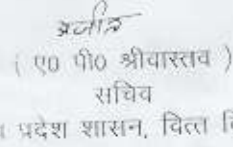 ( ए0 पी0 श्रीवास्तव )
सचिव
प्रदेश शासन, वित्त